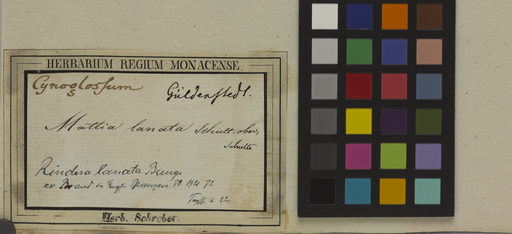 HERBARIUM REGIUM MONACENSE.
Cynoglossum
Güldenstedt.
Mattia lanata Schult. obs.
Schultes
Rindera lanata Bunge
ex Brand in Engl. Pflanzenr. 72
Herb. Schreber.